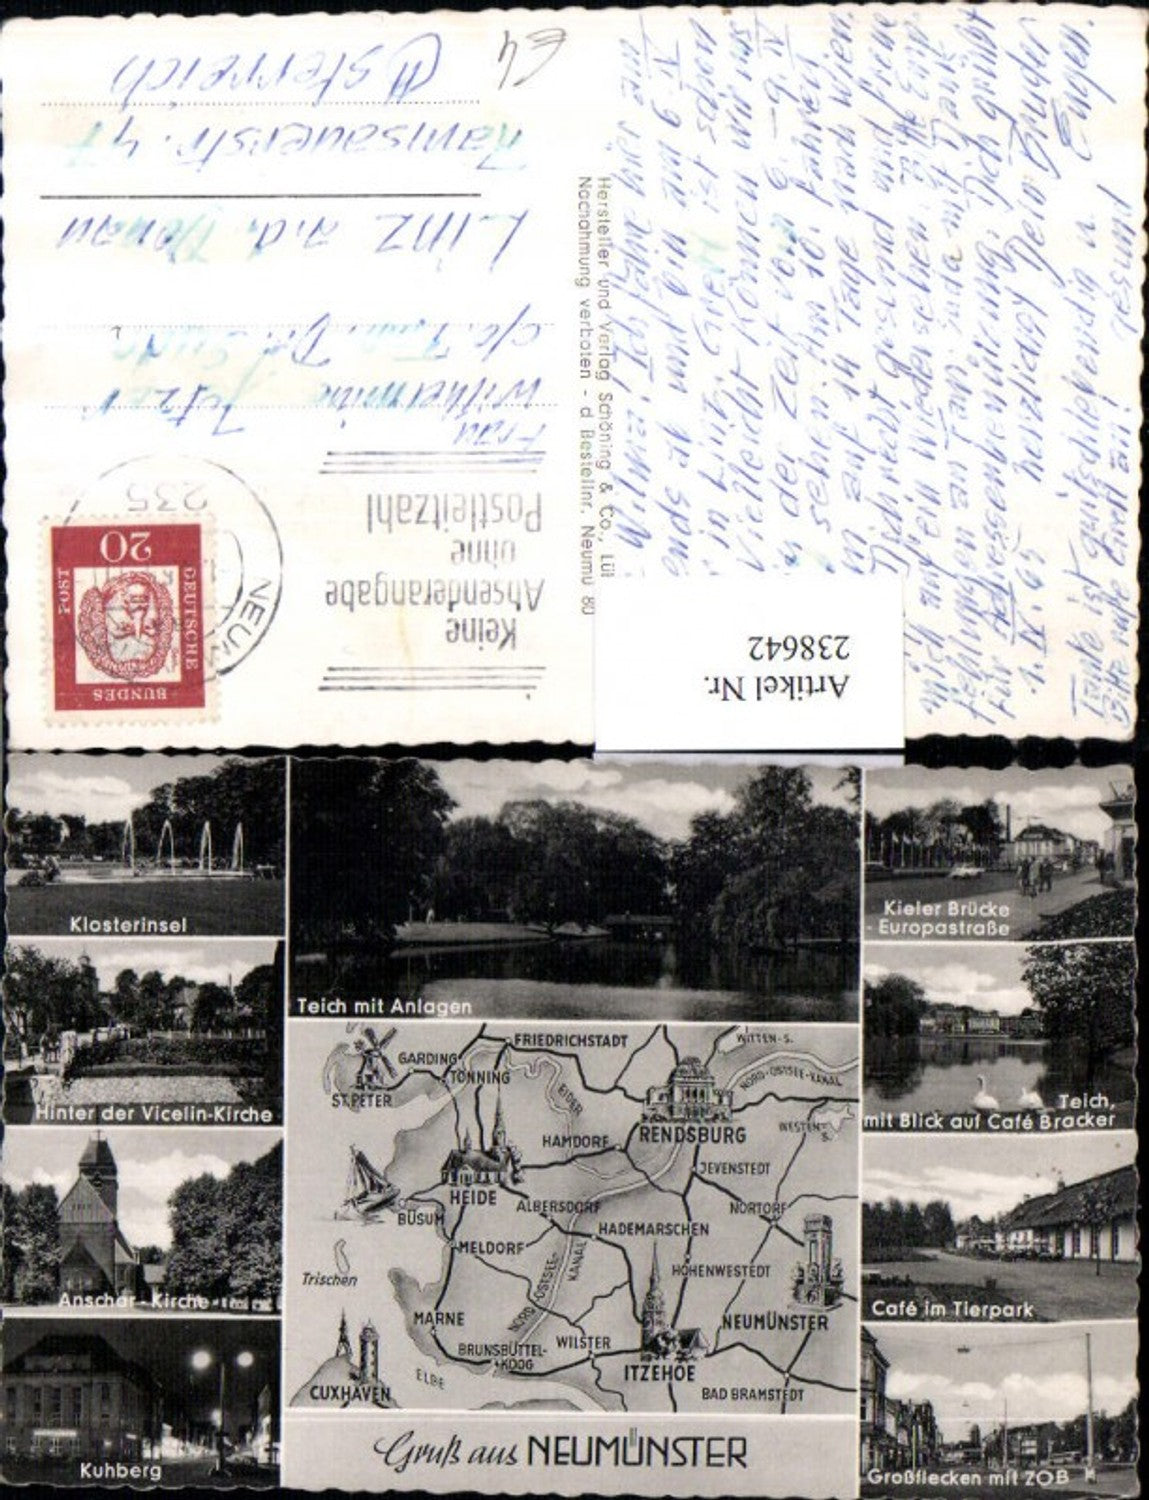 Österreich
Ramsauerstr. 47
Linz a.d. Donau
c/o Fam. Dr.
Wilhelmine
Frau
Keine
Absenderangabe
ohne
Postleitzahl
235
NEUM
DEUTSCHE
BUNDES
POST
20
Hersteller und Verlag Schöning & Co., Lü
Nachahmung verboten - d Bestellnr. Neumü 80
Ich fahre hier am
und bin am 6. IV.
in Linz. ist schon
Vielleicht können wir uns
in der Zeit vom 6. - 9. IV.
sehen. Am 10. fahren
auf 14 Tage nach Wien.
gesund und freue
mich auf ein Wiedersehen. Bitte Emp-
fehlungen an Fam. mit Dank
für Adressenmeldung. Dich grüßt
herzlichst Dein Bruder
Eugen.
Tante ist quitschlebendig u. gesund
Artikel Nr.
238642
Klosterinsel
Teich mit Anlagen
Kieler Brücke
- Europastraße
Hinter der Vicelin-Kirche
Teich,
mit Blick auf Café Bracker
Anschar - Kirche
Café im Tierpark
Kuhberg
Großflecken mit ZOB
FRIEDRICHSTADT
WITTEN-S.
GARDING
TÖNNING
ST. PETER
EIDER
NORD-OSTSEE-KANAL
HAMDORF
RENDSBURG
WESTEN-
S.
JEVENSTEDT
HEIDE
ALBERSDORF
NORTORF
BÜSUM
HADEMARSCHEN
MELDORF
Trischen
HOHENWESTEDT
NORD-OSTSEE-
KANAL
MARNE
NEUMÜNSTER
BRUNSBÜTTEL-
KOOG
WILSTER
ITZEHOE
CUXHAVEN
ELBE
BAD BRAMSTEDT
Gruß aus NEUMÜNSTER